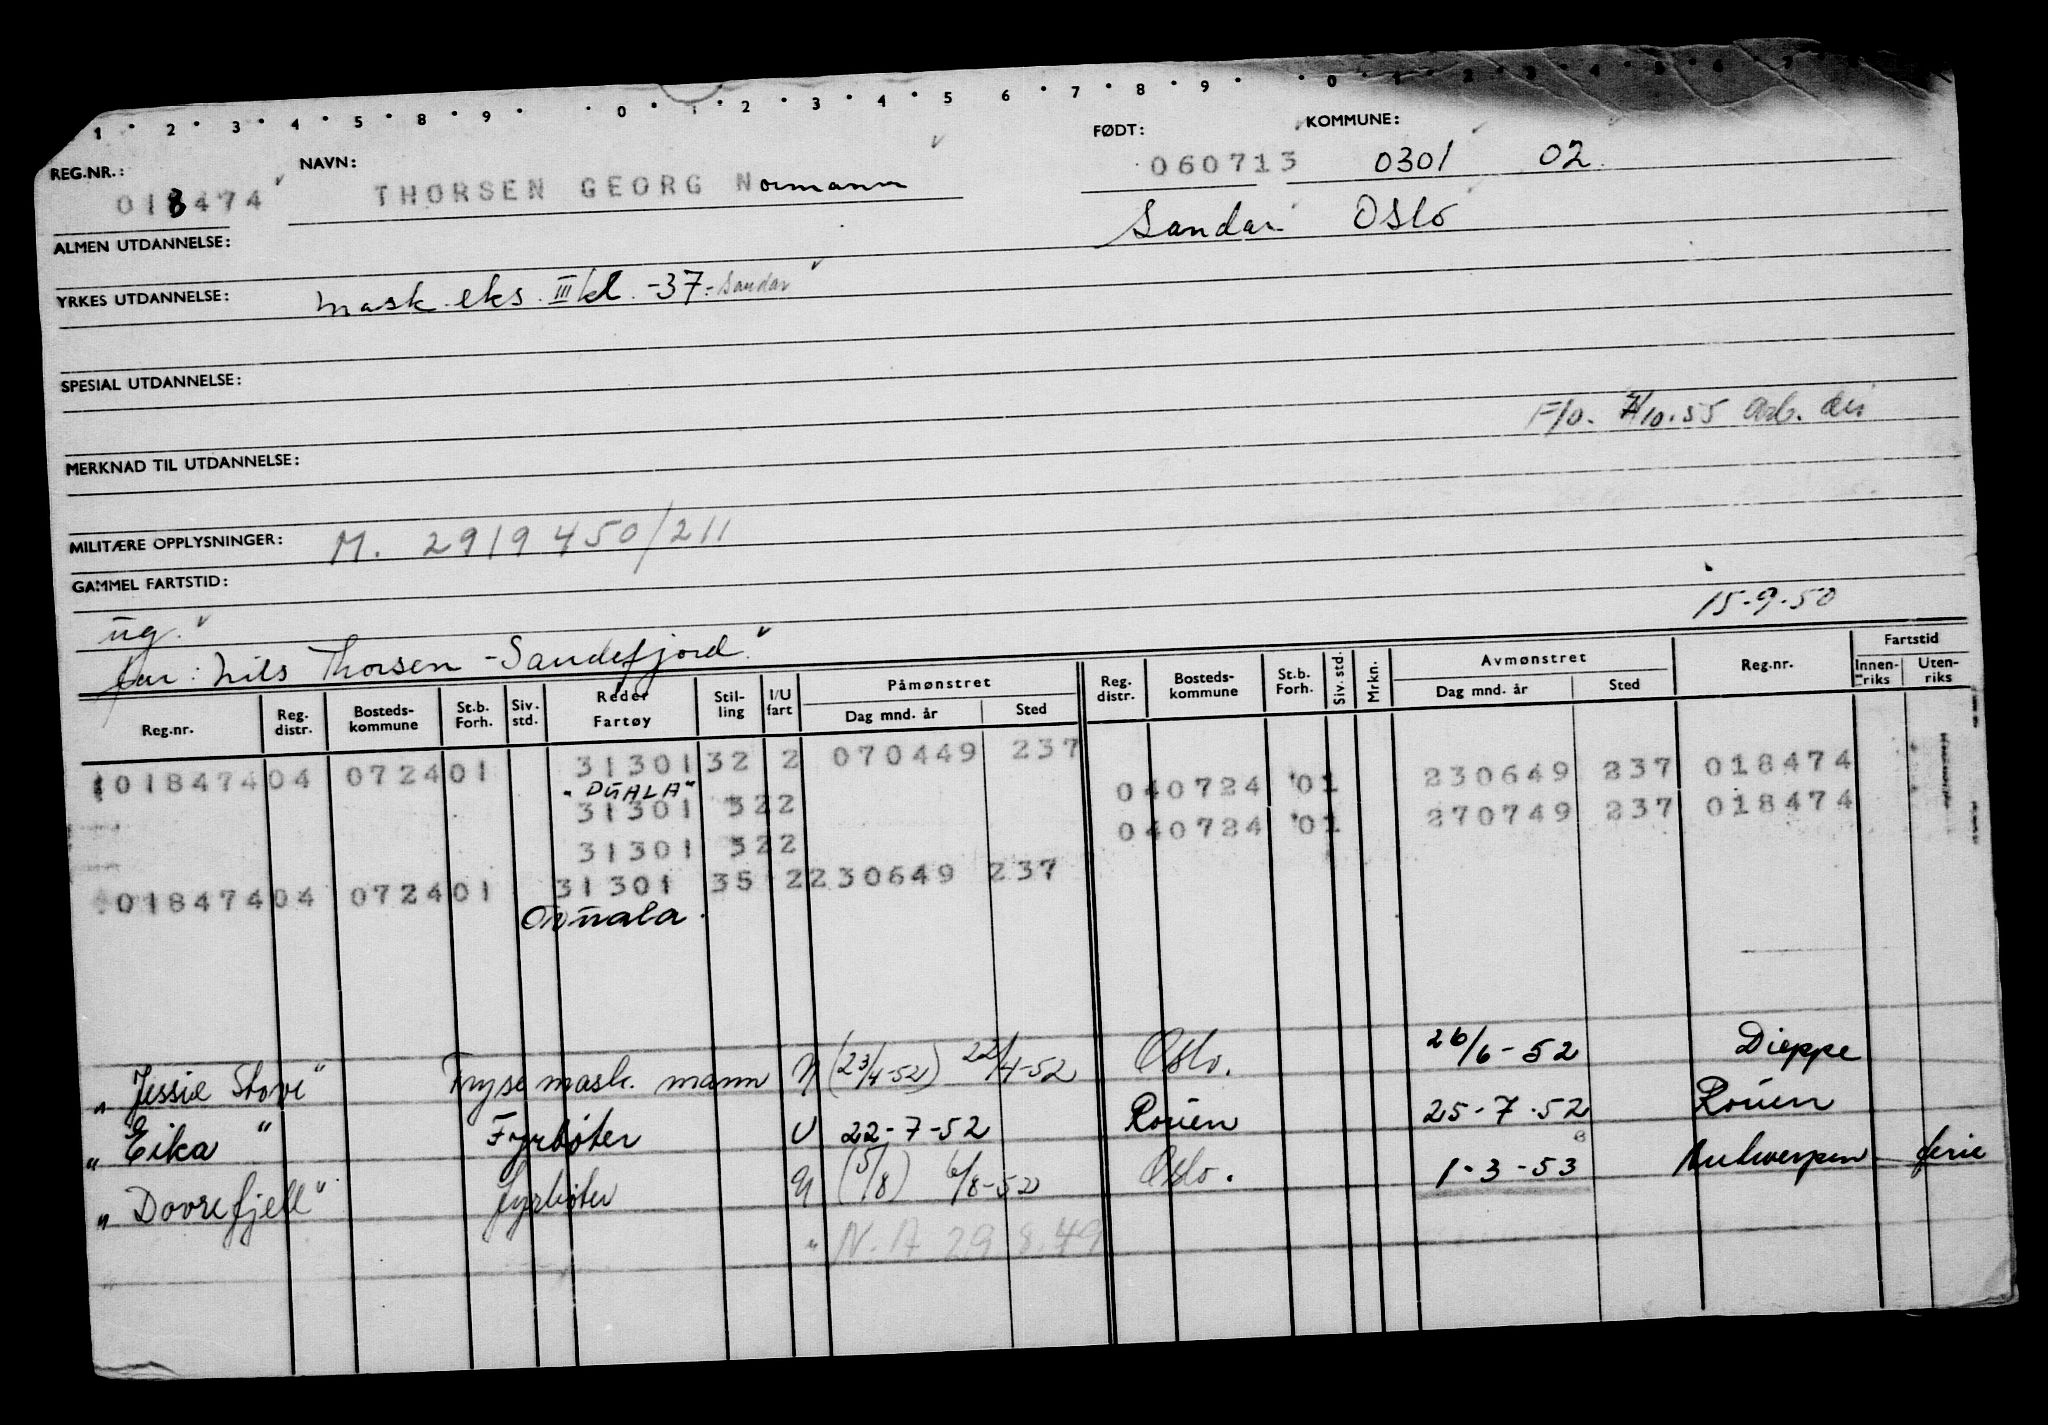 1 · 2 · 3 · 4 · 5 · 8 · 9 · · 0 · 1 · 2 · 3 · 4 · 5 6 · 7 · 8 · 9 · · 0 · 1 · 2 · 3 · 4 · 5 · 6 · 7
REG.NR.: NAVN: FØDT: KOMMUNE:
018474 THORSEN GEORG Normann 060713 0301 02
ALMEN UTDANNELSE: Sandar Oslo
YRKES UTDANNELSE: Mask. eks. III kl. -37- Sandar
SPESIAL UTDANNELSE:
F/O. 7/10.55 Arb. dir
MERKNAD TIL UTDANNELSE:
MILITÆRE OPPLYSNINGER: M. 2919450/211
GAMMEL FARTSTID:
ug. 15-9-50
far: Nils Thorsen - Sandefjord.
Reg.nr. Reg. distr. Bosteds-kommune St.b. Forh. Siv. std. Reder Fartøy Stil-ling I/U fart Påmønstret Dag mnd. år Sted Reg. distr. Bosteds-kommune St.b. Forh. Siv. std. Mrkn. Avmønstret Dag mnd. år Sted Reg.nr. Fartstid Innen-riks Uten-riks
018474 04 0724 01 31301 32 2 070449 237
"DUALA" 04 0724 01 230649 237 018474
31301 322
04 0724 01 270749 237 018474
31301 322
018474 04 0724 01 31301 35 2 230649 237
"Jessie Stove" Frysemask. mann U (23/4-52) 22/4-52 Oslo. 26/6-52 Dieppe
"Eika" Fyrbøter U 22-7-52 Rouen 25-7-52 Rouen
"Dovrefjell" fyrbøter U (5/8) 6/8-52 Oslo. 1-3-53 Antwerpen ferie
" N.A 29.8.49